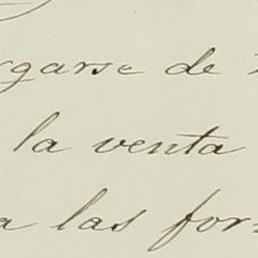 rgarse de
la venta
a las for